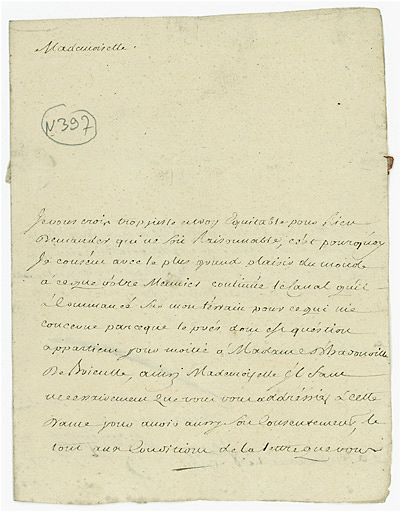 Mademoiselle.
N.397
Je vous crois trop juste et trop Equitable pour Rien
Demander qui ne soit Raisonnable, c'est pourquoy
Je consens avec le plus grand plaisir du monde
à ce que votre Meunier continue le Canal qu'il
à Commancé sur mon terrain pour ce qui me
concerne parceque le prés dont est question
appartient pour moitié à Madame
De ainsy Mademoiselle Il faut
necessairement que vous vous addréssiés à cette
Dame pour avoir aussy son Consentement, le
tout aux Conditions de la lettre que vous